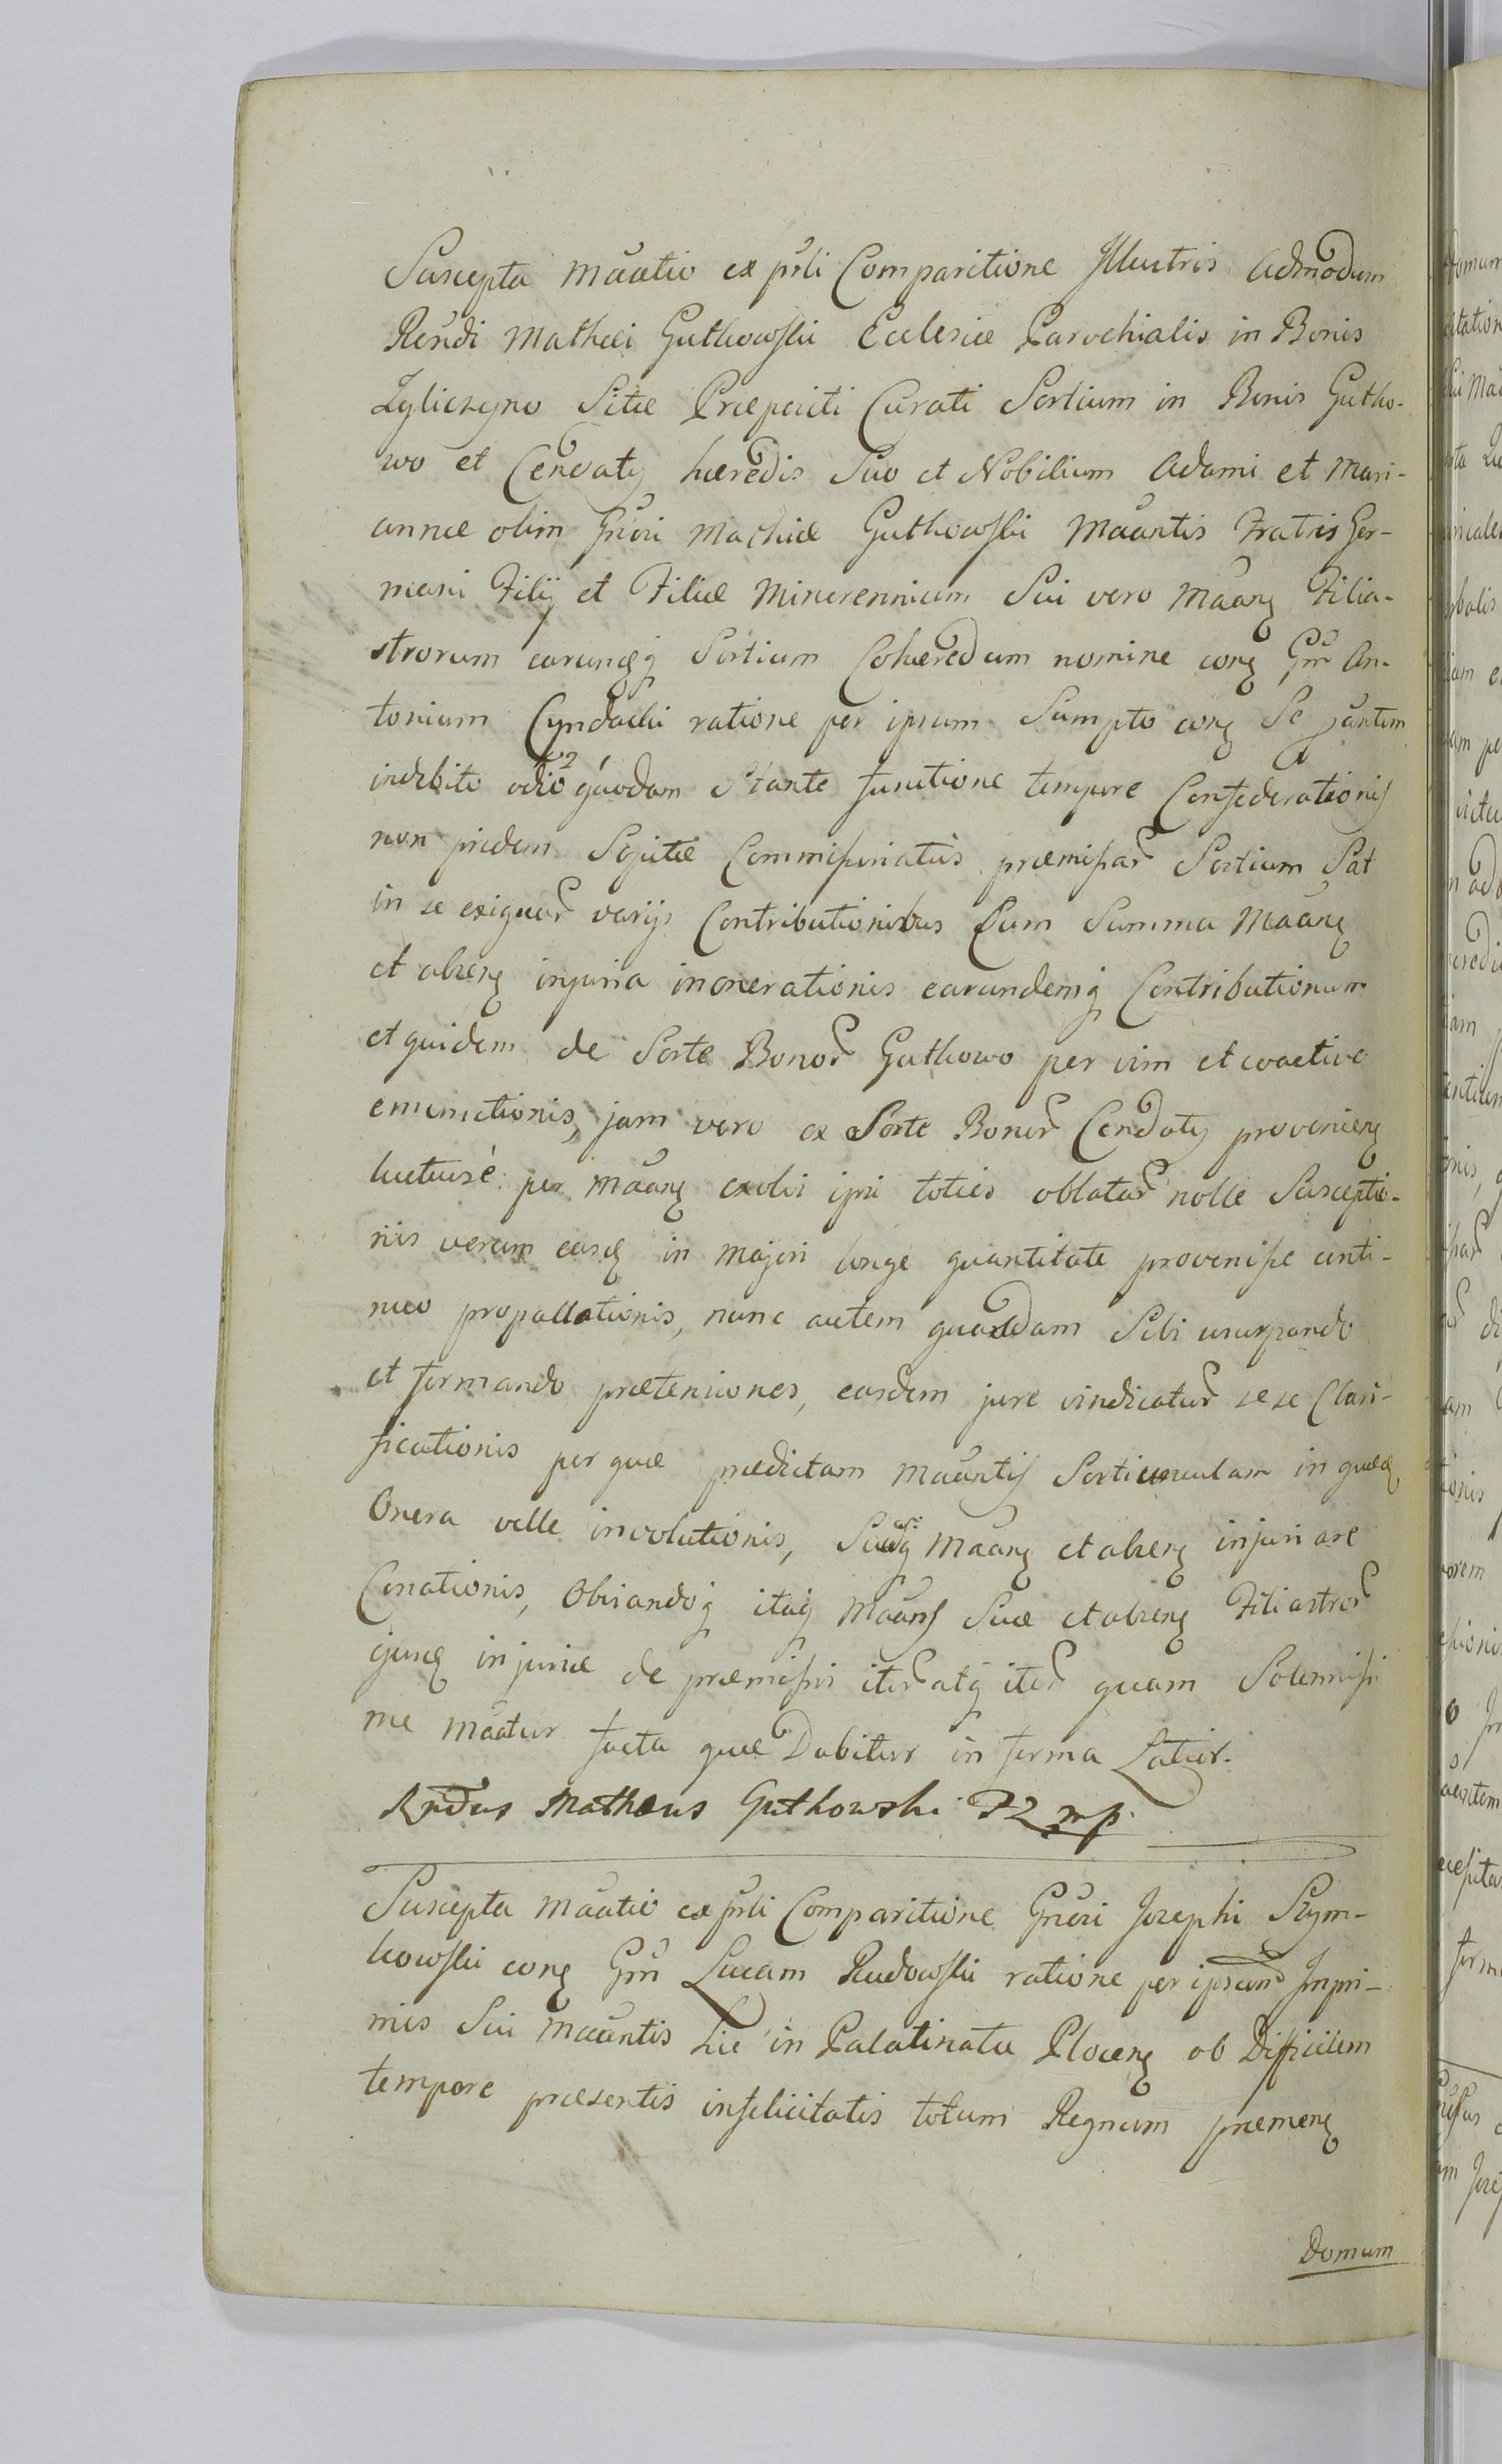 Suscepta Maãtio ex prli Comparitione Illustris Admodum
Rendi Mathæi Gutkowski Ecclesiæ Parochialis in Bonis
Zyliczyno Sitæ Præpositi Curati Sortium in Bonis Gutko-
wo et Cendaty hæredis Suo et Nobilium Adami et Mari-
annæ olim Gnosi Mathiæ Gutkowski Maãntis Fratris Ger-
mani Filij et Filiæ Minorennium Sui vero Maãnꝫ Filia-
strorum earundꝫq Sortium Cohæredum nomine conꝫ Gm An-
tonium Cyndacki ratione per ipsum Sumpto conꝫ Se
indebito odio quodam Stante functione tempore Confederationis
non pridem Sopitæ Commissoriatus præmissar Sortium Sat
in se exiguar varijs Contributionibus Cum Summa Maãnꝫ
et absenꝫ injuria inonerationis earundemq Contributionum
et quidem de Sorte Bonor Gutkowo per vim et coactive
emunctionis, jam vero ex Sorte Bonor Cendaty provenienꝫ
luctuose per Maãnꝫ exolvi ipsi toties oblatar nolle Susceptio-
nis verum easꝫ in Majori longe quantitate provenisse conti-
nuo propallationis, nunc autem quasdam Sibi usurpando
et formando prætensiones, easdem jure vindicatur sese Clari-
ficationis per quæ prædictam Maãntis Sortiunculam in quæꝫ
Onera velle involutionis, Maãnꝫ et absenꝫ injuriare
Conationis, Obviandoq itaq Maãns Suæ et absenꝫ Filiastror
ejusꝫ injuriæ de præmissis iter atq iter quam Solennissi
me Maãtur facta quæ Dabitur in forma Latior.
Rndus Mathæus Gutkowski mp
Suscepta Maãtio ex prli Comparitione Gnosi Josephi Szym-
kowski conꝫ Gm Lucam Rudowski ratione per ipsum Inpri-
mis Sui Maãntis hic in Palatinatu Plocenꝫ ob Difficilem
tempore præsentis infelicitatis totum Regnum præmenꝫ
Domum